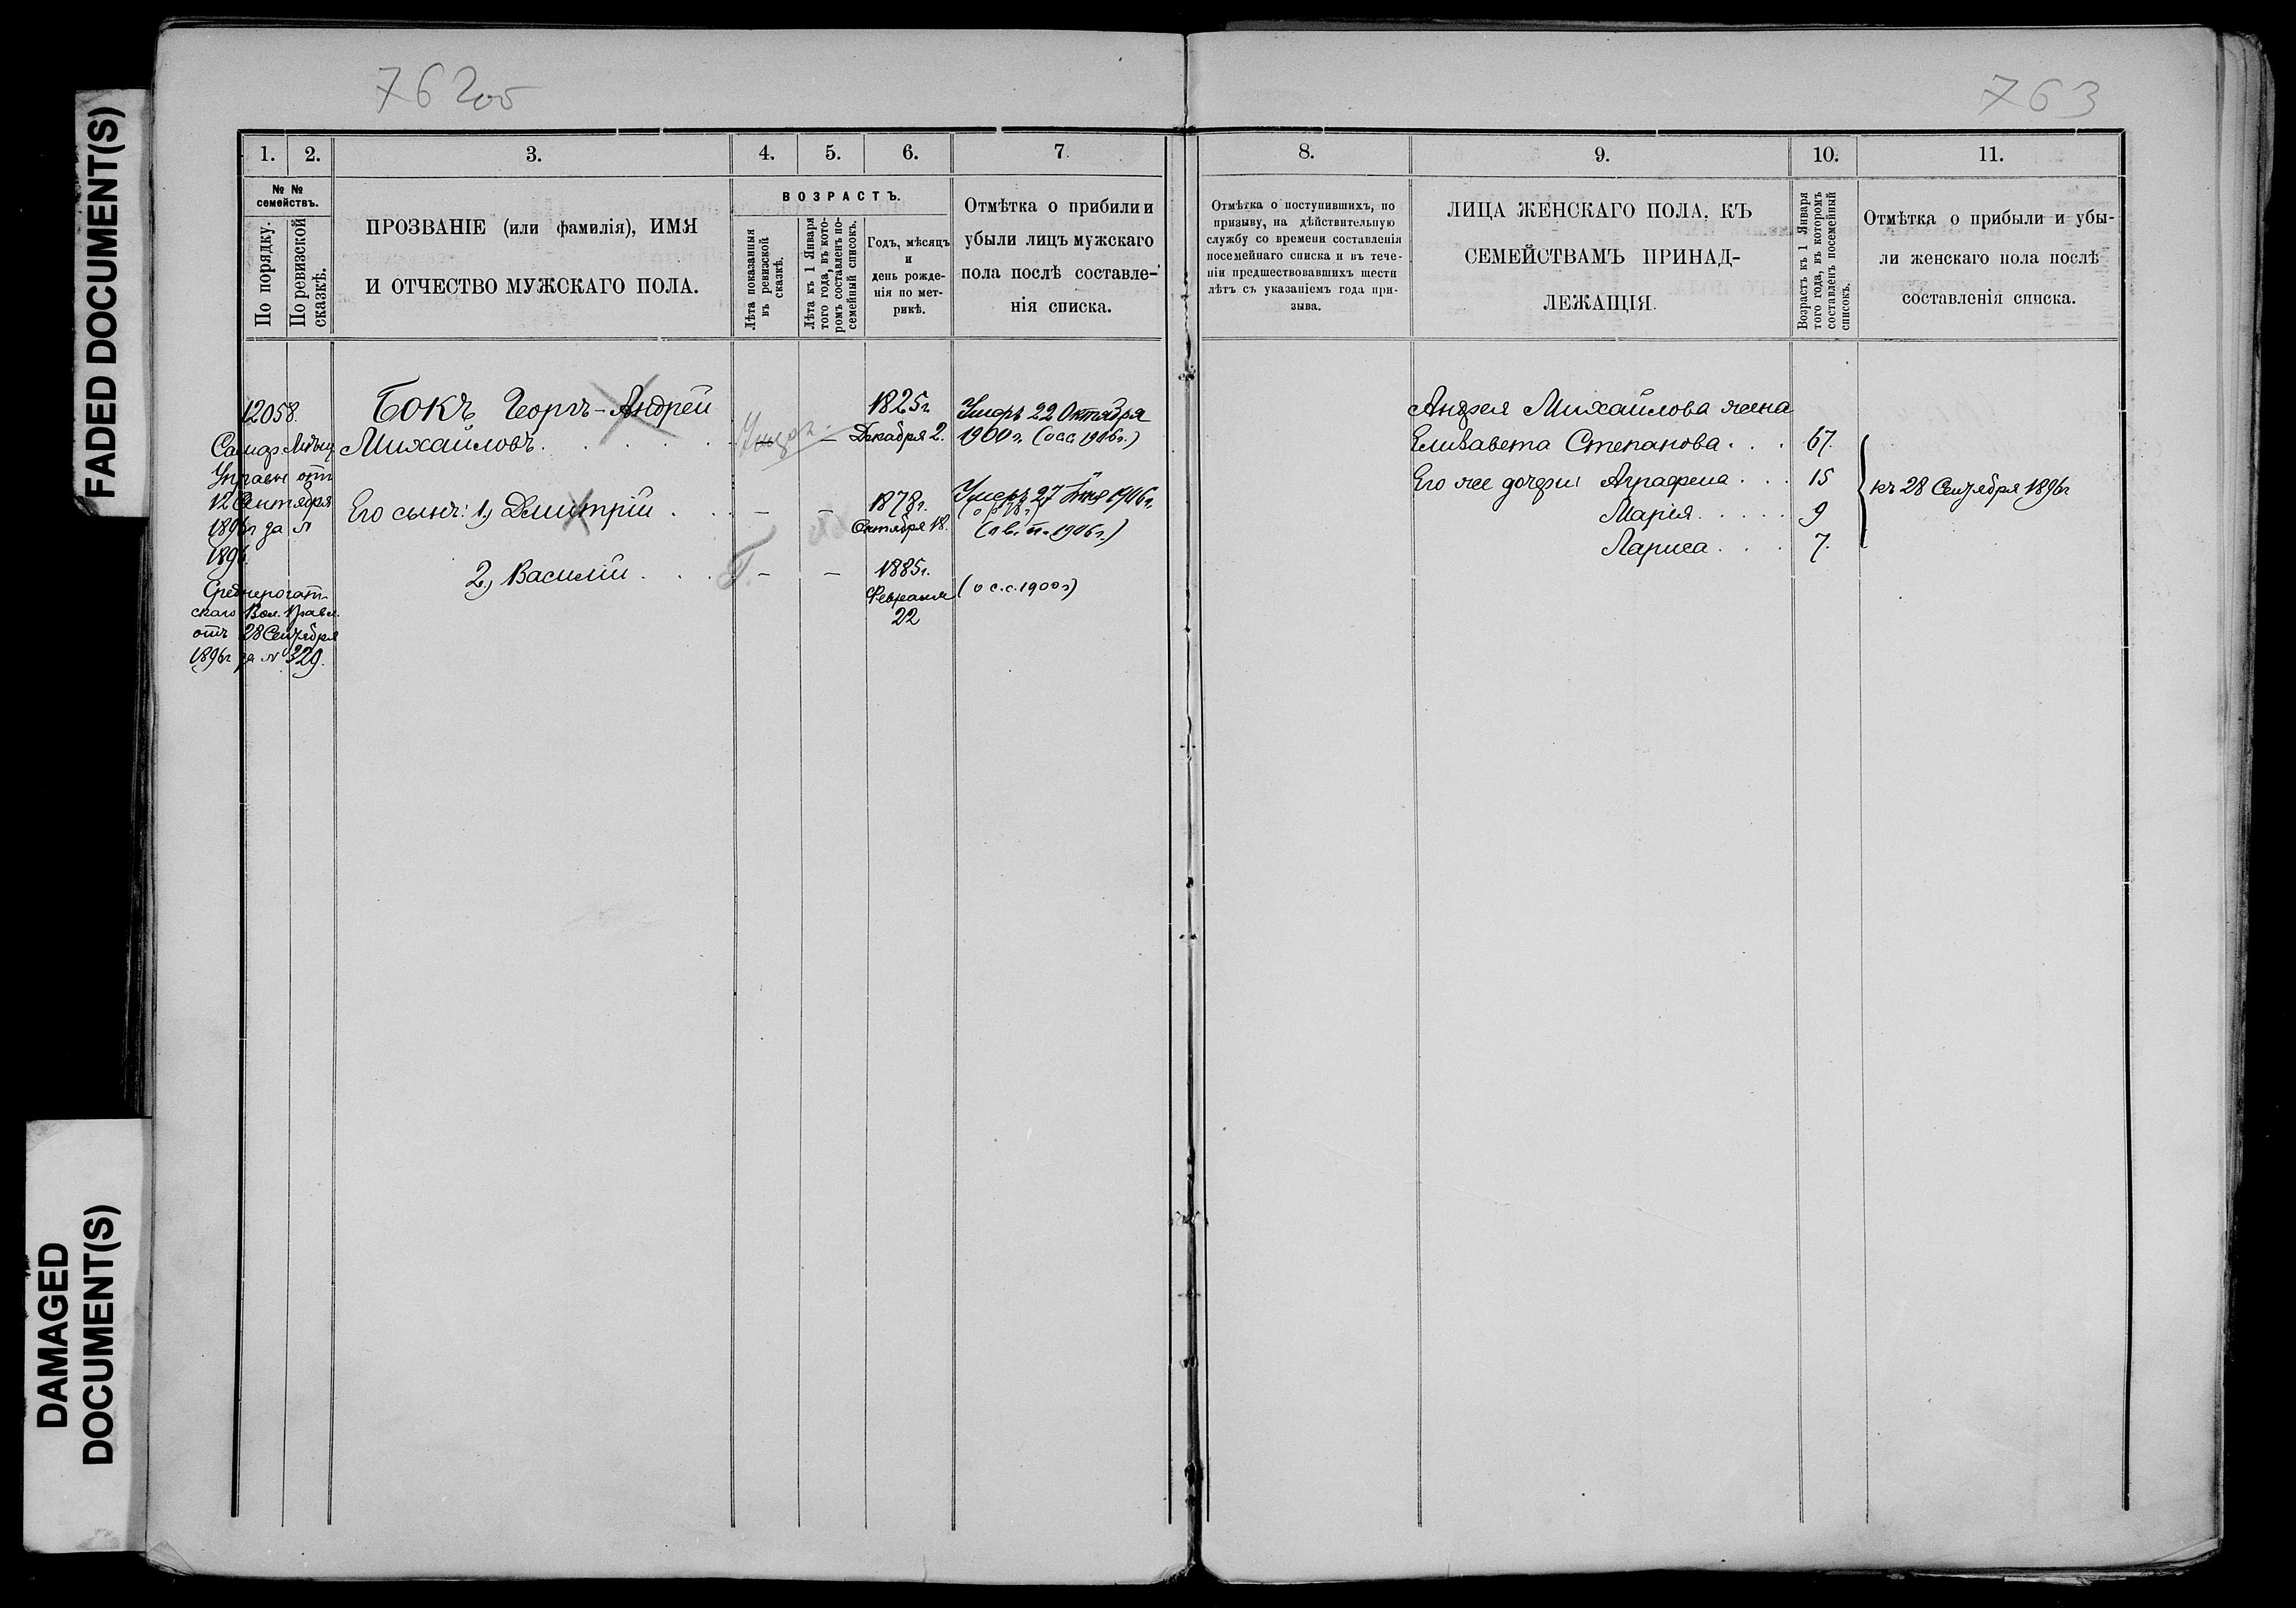 FADED DOCUMENT(S)
DAMAGED
DOCUMENT(S)
762об
763
1.
2.
3.
4.
5.
6.
7.
№ №
семействъ.
По порядку.
По ревизской
сказкѣ.
ПРОЗВАНІЕ (или фамилія), ИМЯ
И ОТЧЕСТВО МУЖСКАГО ПОЛА.
ВОЗРАСТЪ.
Лѣта показанныя
въ ревизской
сказкѣ.
Лѣта къ 1 Января
того года, въ кото-
ромъ составленъ по-
семейный списокъ.
Годъ, мѣсяцъ
и
день рожде-
нія по мет-
рикѣ.
Отмѣтка о прибыли и
убыли лицъ мужскаго
пола послѣ составле-
нія списка.
12058.
Самар. Мѣщ.
Управы отъ
12 Сентября
1896г за №
1896.
Среднерогат-
скаго Вол. Правл.
отъ 28 Сентября
1896г за № 329.
Бокъ Георгъ-Андрей
Михайловъ
Умеръ.
—
1825г.
Декабря 2.
Умеръ 22 Октября
1900г. (о с.с. 1906г.)
Его сынъ: 1, Дмитрій
—
—
1878г.
Октября 18.
Умеръ 27 1906г.
1906г.)
2, Василій
Г.
—
—
1885г.
Февраля
22
(о с.с. 1900г)
8.
9.
10.
11.
Отмѣтка о поступившихъ, по
призыву, на дѣйствительную
службу со времени составленія
посемейнаго списка и въ тече-
ніи предшествовавшихъ шести
лѣтъ съ указаніемъ года при-
зыва.
ЛИЦА ЖЕНСКАГО ПОЛА, КЪ
СЕМЕЙСТВАМЪ ПРИНАД-
ЛЕЖАЩІЯ.
Возрастъ къ 1 Января
того года, въ которомъ
составленъ посемейный
списокъ.
Отмѣтка о прибыли и убы-
ли женскаго пола послѣ
составленія списка.
Андрея Михайлова жена
Елизавета Степанова . . . 67.
Его же дочери Аграфена . . . 15
къ 28 Сентября 1896г
Марія . . . . . 9
Лариса . . . 7.